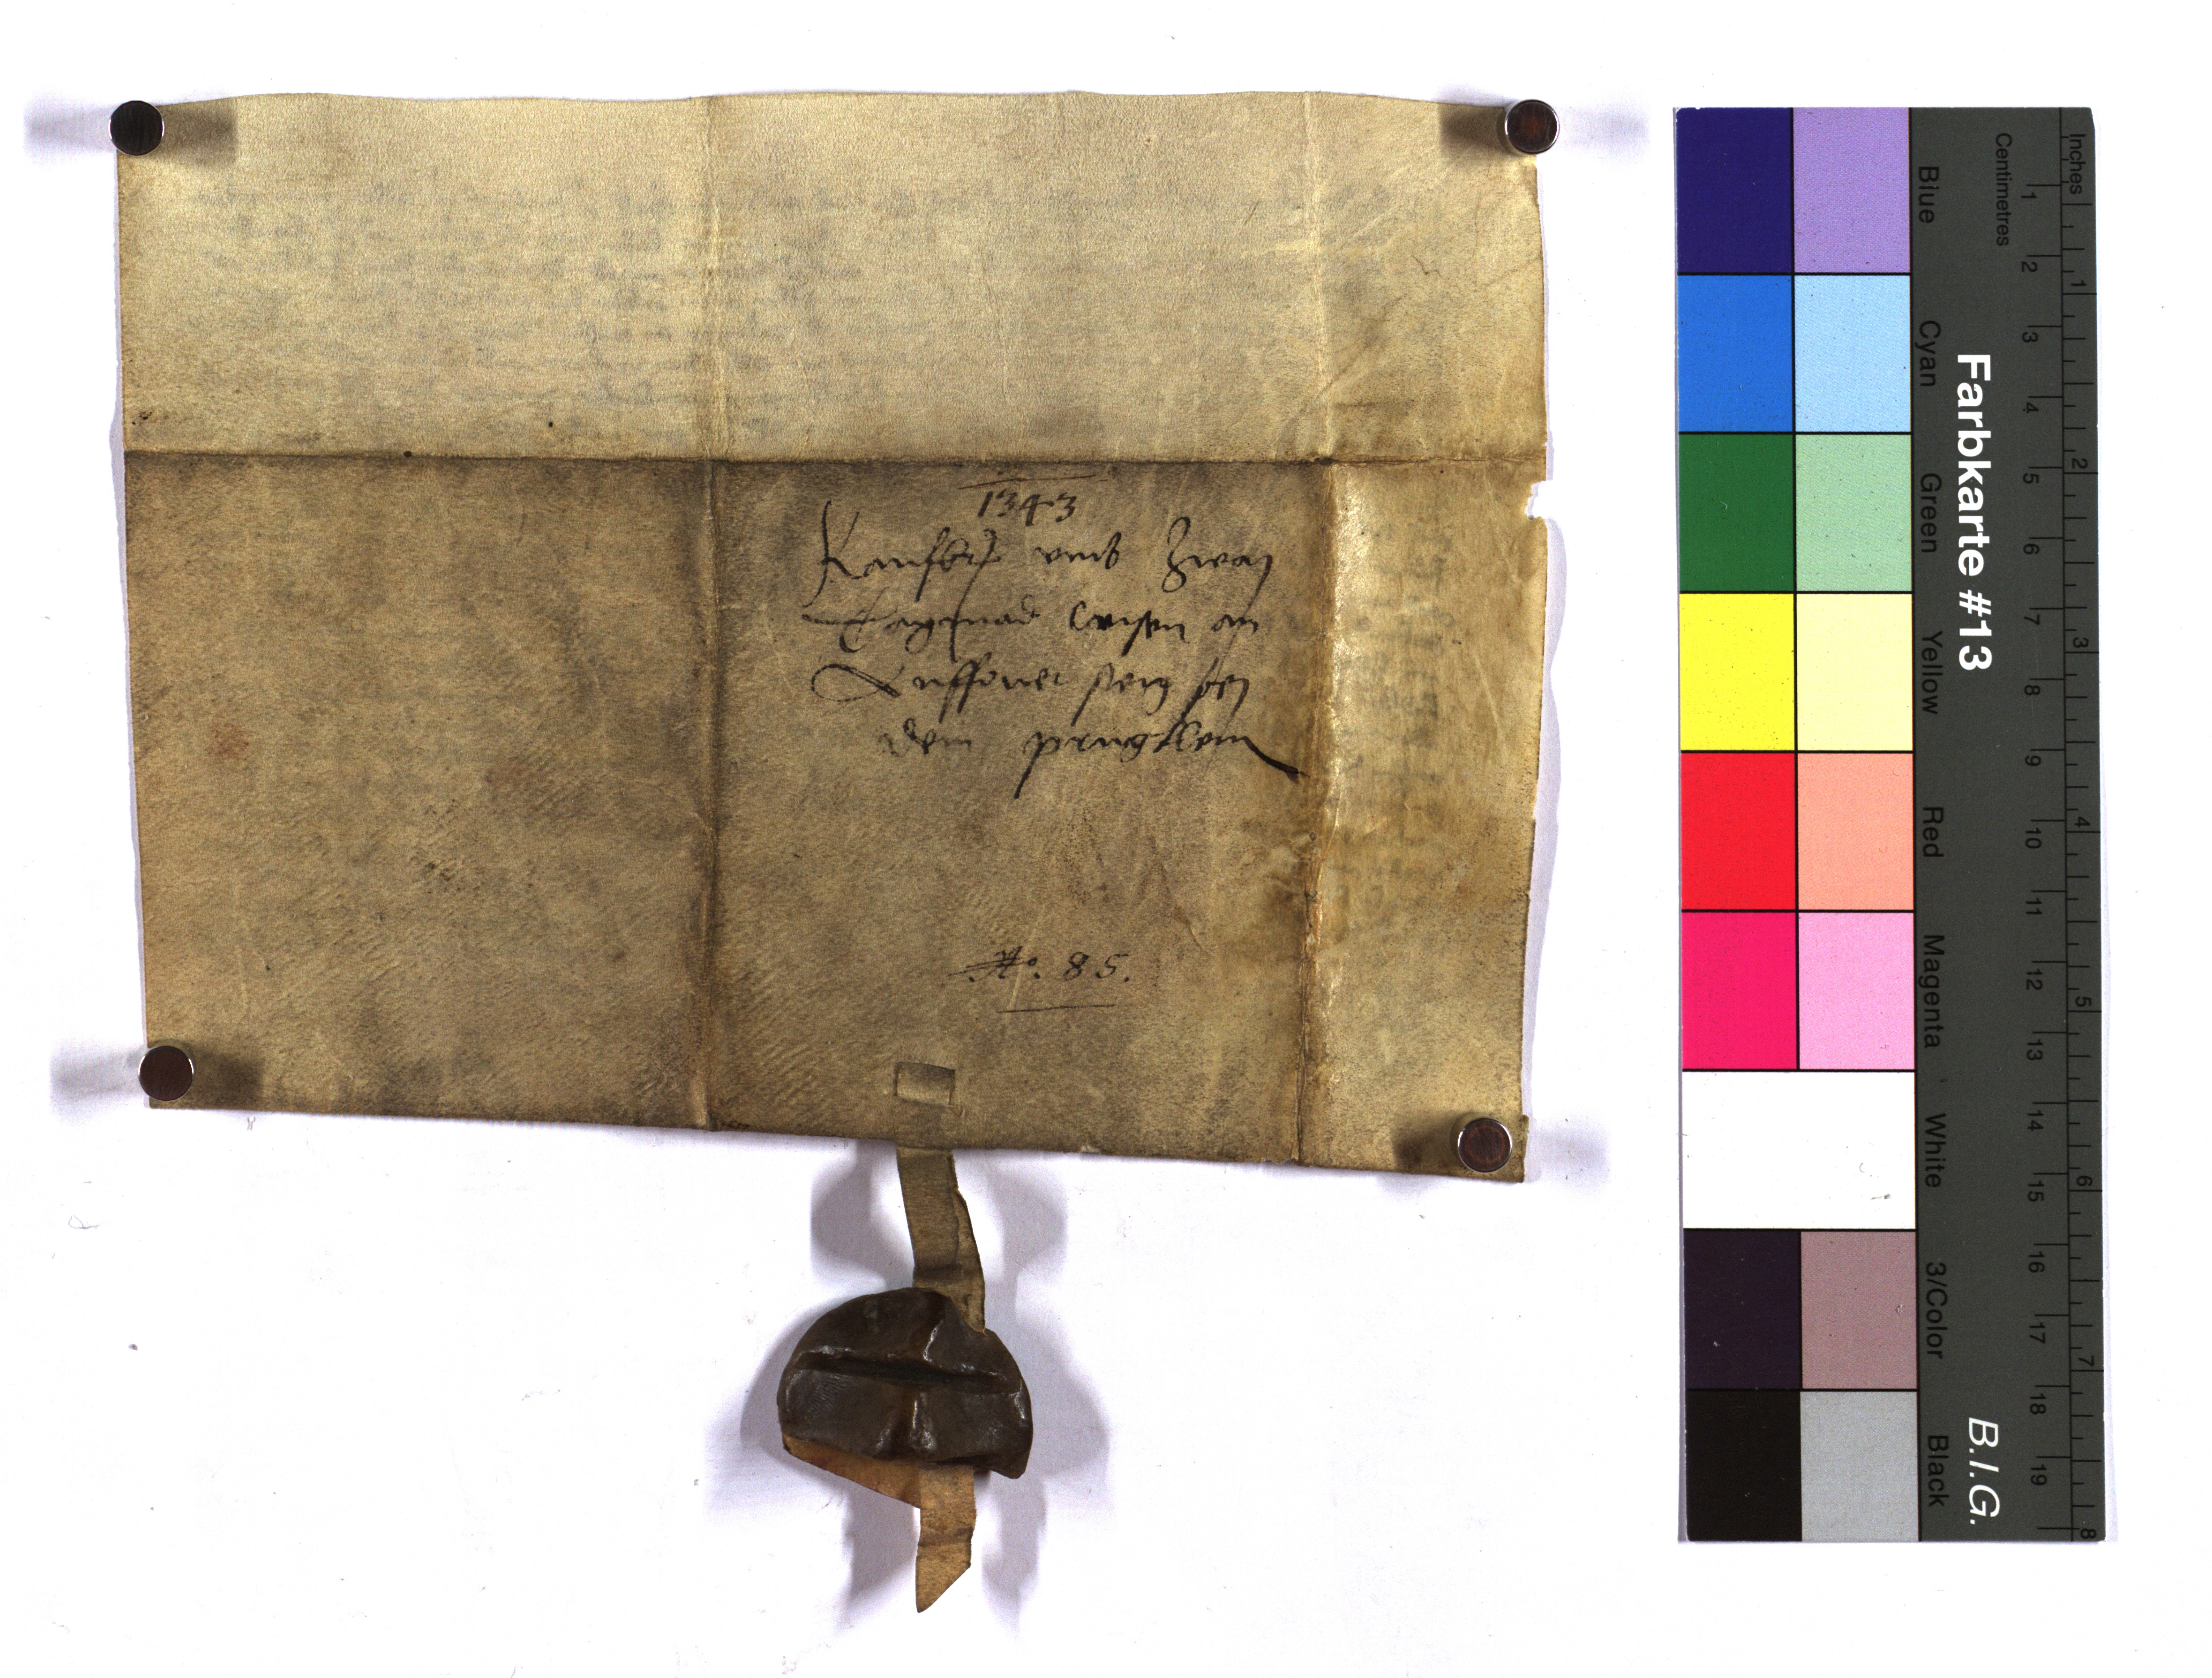 1343
Kaufbrief umb Zway
Tagmad wisen an
perg bey
dem prugklein
No. 85.
Farbkarte #13
B.I.G.
Inches
Centimetres
1 2 3 4 5 6 7 8
1 2 3 4 5 6 7 8 9 10 11 12 13 14 15 16 17 18 19
Blue
Cyan
Green
Yellow
Red
Magenta
White
3/Color
Black